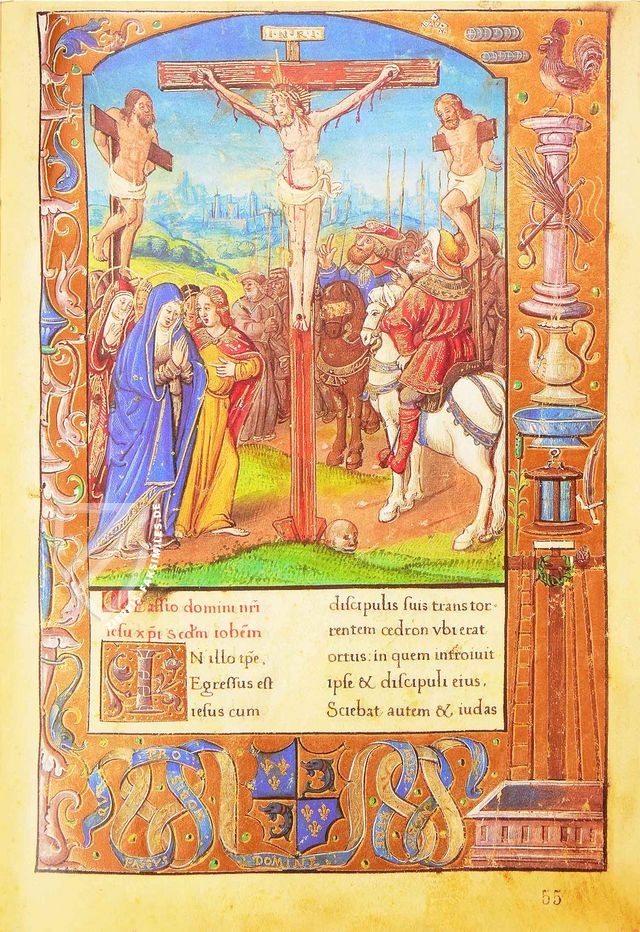 I·N·R·I
Passio domini nr̄i
iesu xp̄i secdm̄ iohēm
IN illo tp̄e,
Egressus est
iesus cum
discipulis suis trans tor-
rentem cedron vbi erat
ortus: in quem introiuit
ipse & discipuli eius,
Sciebat autem &, iudas
PRO
PASSVS
DOMINE
55